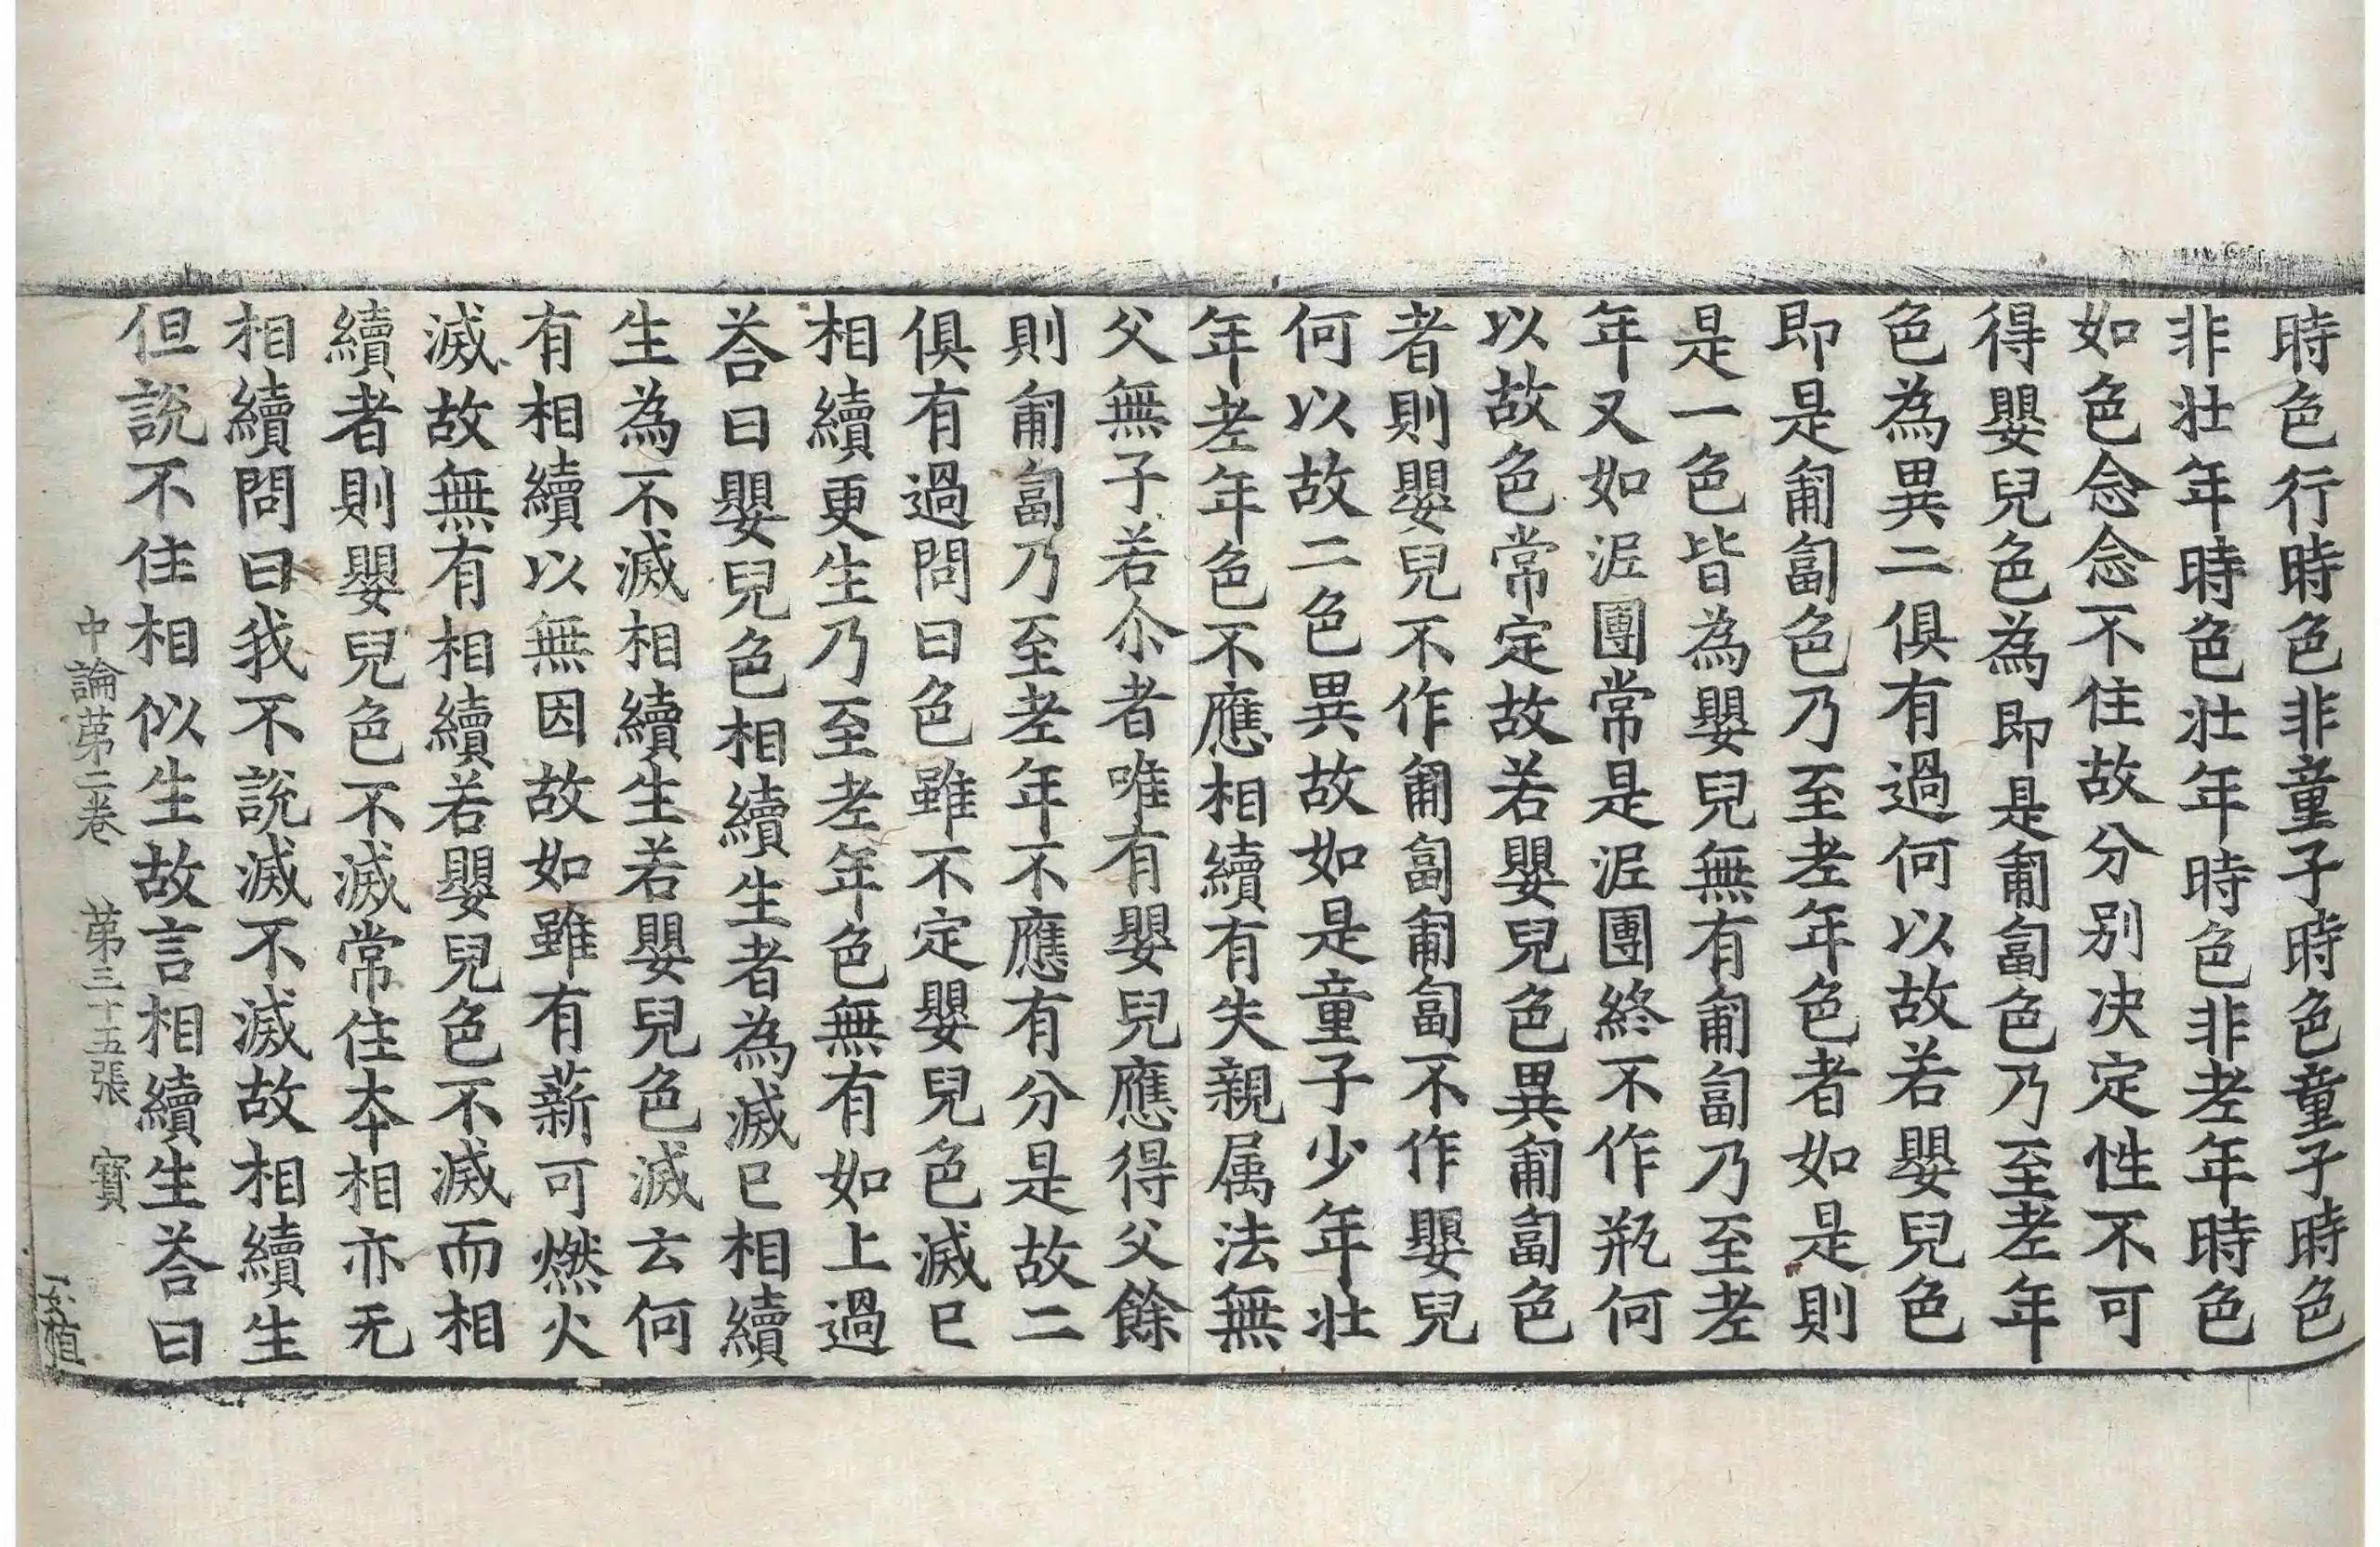 時色行時色非童子時色童子時色
非壯年時色壯年時色非老年時色
如色念念不住故分別決定性不可
得嬰兒色為即是匍匐色乃至老年
色為異二俱有過何以故若嬰兒色
即是匍匐色乃至老年色者如是則
是一色皆為嬰兒無有匍匐乃至老
年又如泥團常是泥團終不作瓶何
以故色常定故若嬰兒色異匍匐色
者則嬰兒不作匍匐匍匐不作嬰兒
何以故二色異故如是童子少年壯
年老年色不應相續有失親属法無
父無子若尒者唯有嬰兒應得父餘
則匍匐乃至老年不應有分是故二
俱有過問曰色雖不定嬰兒色滅已
相續更生乃至老年色無有如上過
荅曰嬰兒色相續生者為滅已相續
生為不滅相續生若嬰兒色滅云何
有相續以無因故如雖有薪可燃火
滅故無有相續若嬰兒色不滅而相
續者則嬰兒色不滅常住本相亦无
相續問曰我不說滅不滅故相續生
但說不住相似生故言相續生荅曰
中論第二卷 第三十五張 寳